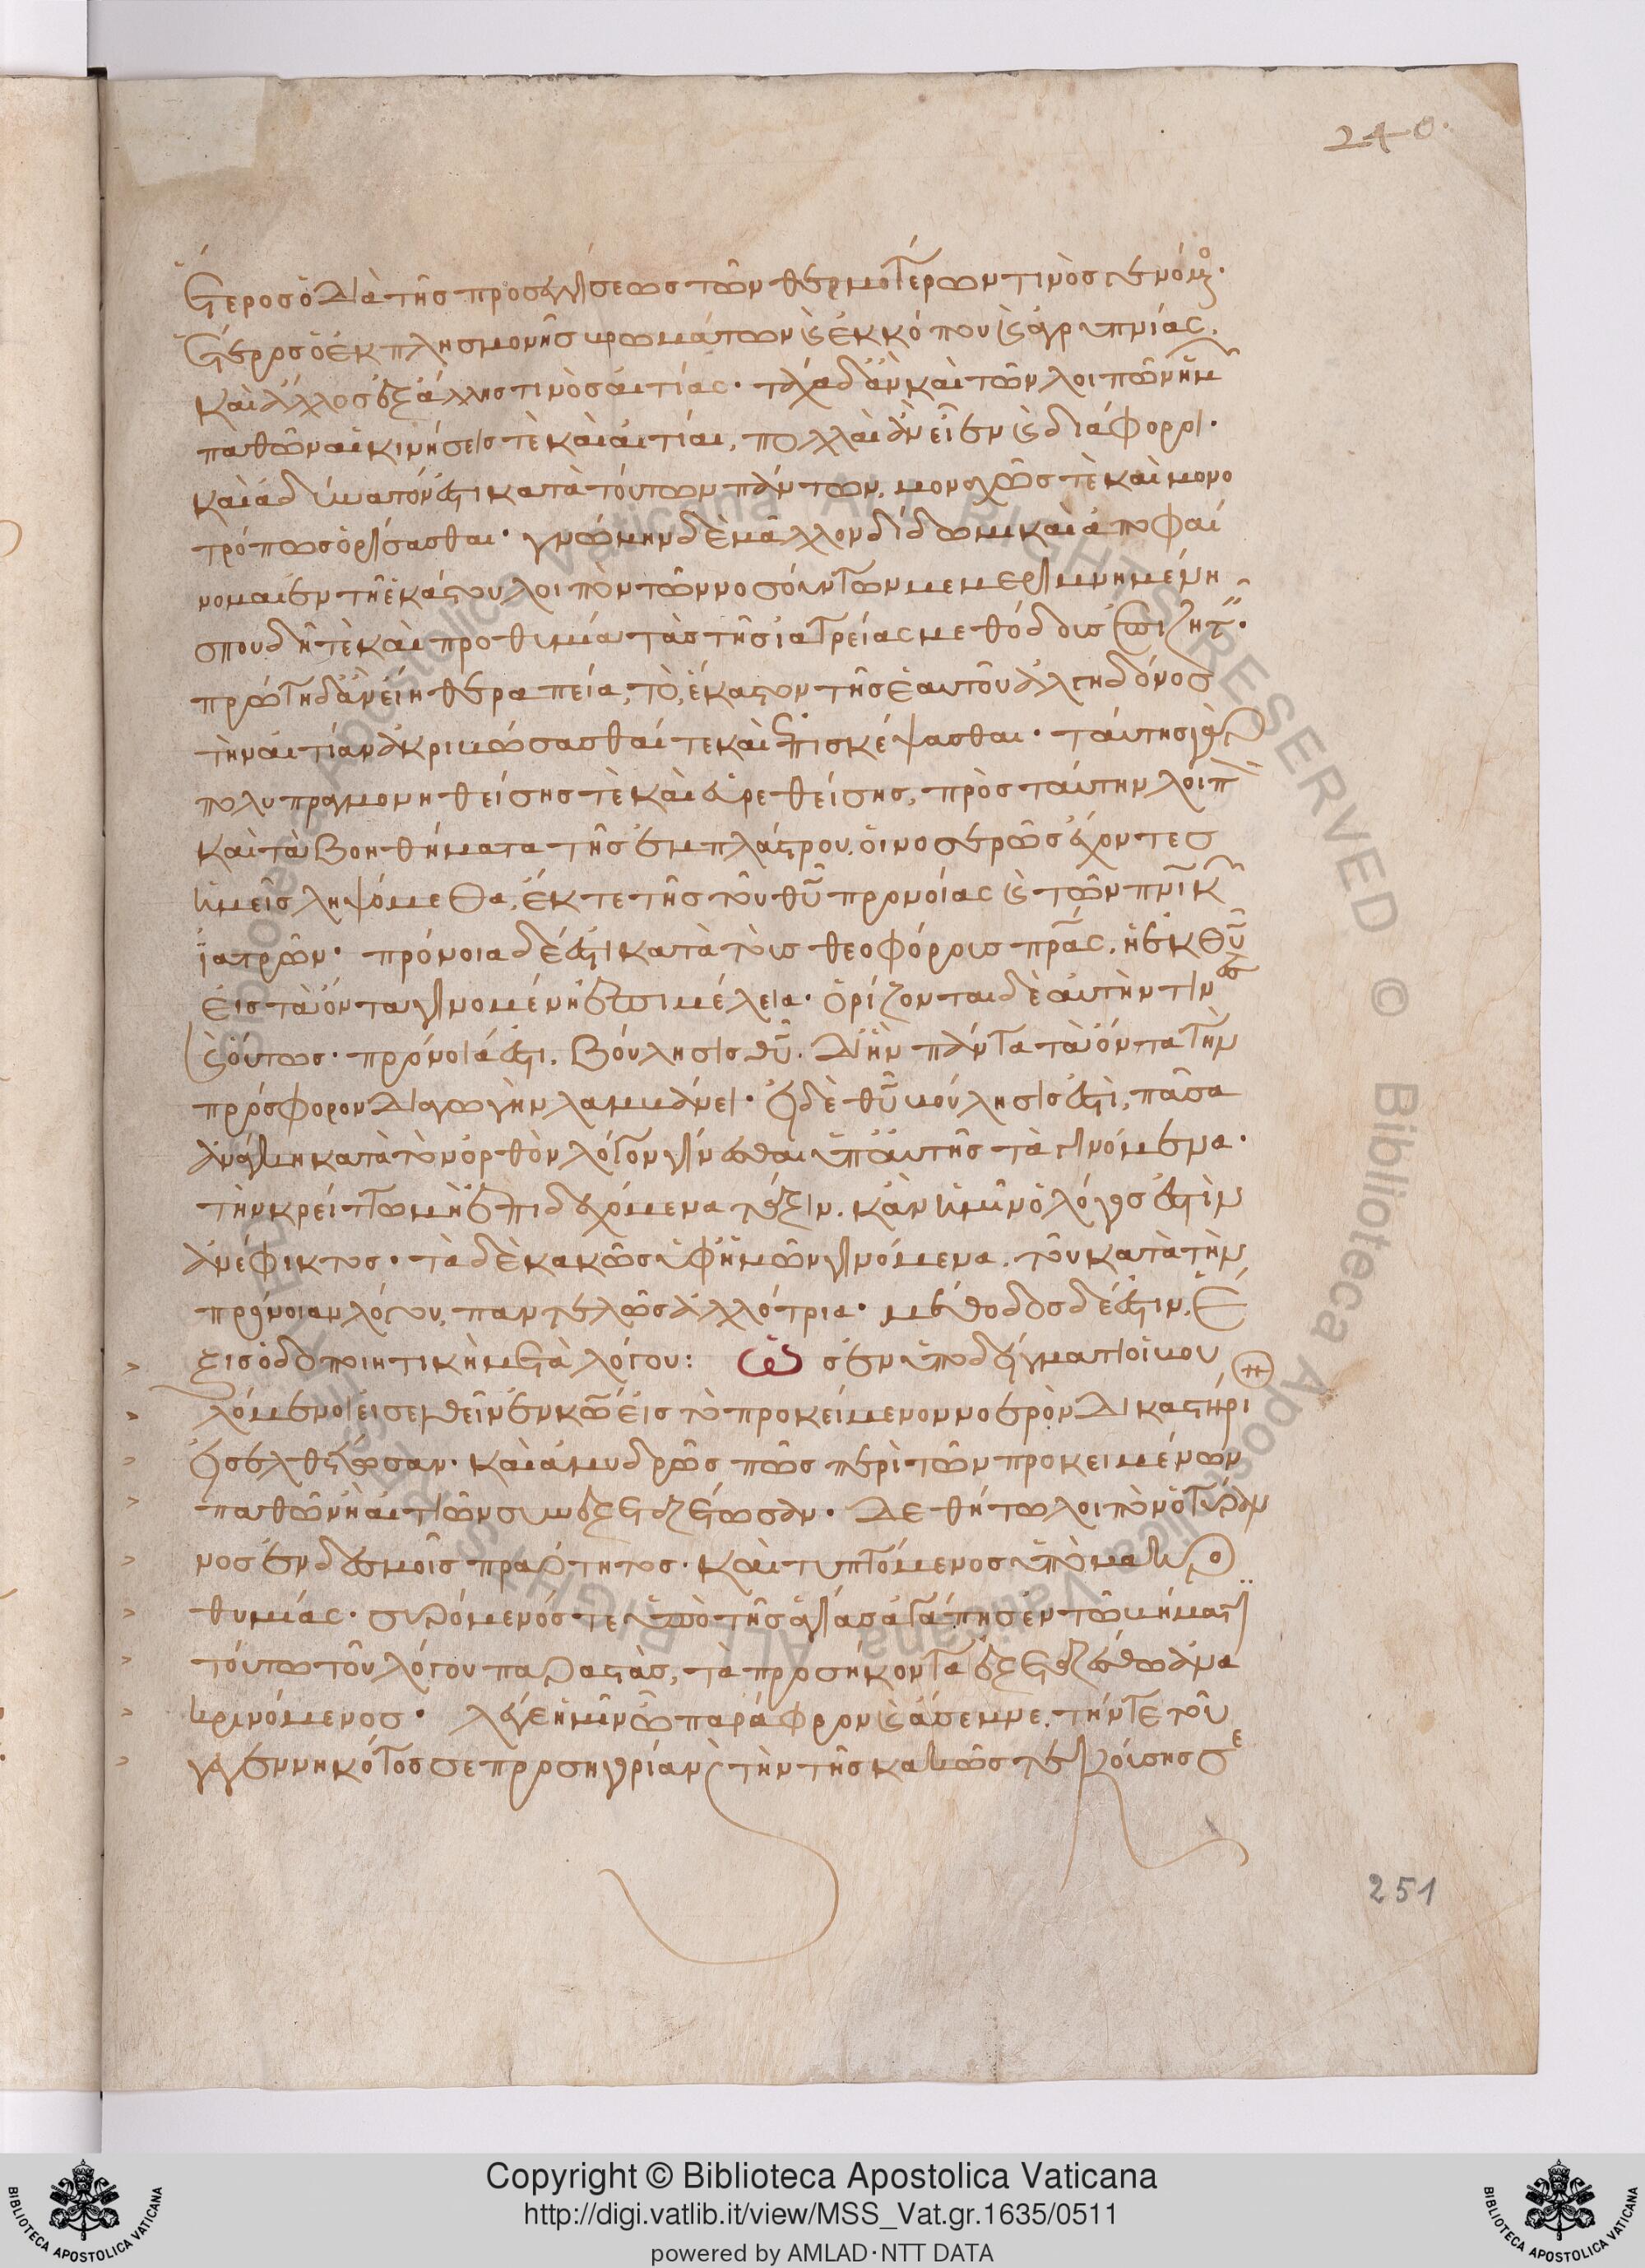 240.
ἕτερος ὁ διὰ τῆς προσεγγίσεως τῶν θερμοτέρων τινὸς γενόμ
ἕτερος ὁ ἐκ πλησμονῆς βρωμάτων ϛ ἐκ κόπου ϛ ἀγρυπνίας.
καὶ ἄλλος ἐξ ἄλλης τινὸς αἰτίας· τάχα δ' ἂν καὶ τῶν λοιπῶν ἡμ
παθῶν αἱ κινήσεις τὲ καὶ αἰτίαι, πολλαὶ ἂν εἶεν ϛ διάφοροι·
καὶ ἀδύνατόν ἐστι κατὰ τούτων πάντων, μοναχῶς τὲ καὶ μονο
τρόπως ὁρίσασθαι· γνώμην δὲ μᾶλλον δίδωμι καὶ ἀποφαί
νομαι ἐν τῇ ἑκάστου λοιπὸν τῶν νοσούντων μεμεριμνημένῃ
σπουδῇ τὲ καὶ προθυμία τὰς τῆς ἰατρείας μεθόδους
πρώτη δ' ἂν εἴη θεραπεία, τὸ, ἕκαστον τῆς ἑαυτοῦ ἀλγηδόνος
τὴν αἰτίαν ἀκριβώσασθαί τε καὶ ἐπισκέψασθαι· ταύτης γὰρ
πολυπραγμονηθείσης τὲ καὶ εὑρεθείσης, πρὸς ταύτην λοιπ
καὶ τὰ βοηθήματα τῆς ἐμπλάστρου. οἱ νοσερῶς ἔχοντες
ἡμεῖς ληψόμεθα, ἔκ τε τῆς τοῦ θῦ προνοίας ϛ τῶν πνικ
ἰατρῶν· πρόνοια δέ ἐστι κατὰ τοὺς θεοφόρους πρας, ἡ ἐκ θῦ
εἰς τὰ ὄντα γινομένη ἐπιμέλεια· ὁρίζονται δὲ αὐτὴν τινες
ϛ οὕτως· πρόνοιά ἐστι, βούλησις θῦ. δι' ἣν πάντα τὰ ὄντα τὴν
πρόσφορον διαγωγὴν λαμβάνει· εἰ δὲ θῦ βούλησίς ἐστὶ, πᾶσα
ἀνάγκη κατὰ τὸν ὀρθὸν λόγον γίνεσθαι ὑπ' αὐτῆς τὰ γινόμενα·
τὴν κρείττω μὴ ἐπιδεχόμενα τάξιν. κἂν ἡμῖν ὁ λόγος ἐστὶν
ἀνέφικτος· τὰ δὲ κακῶς ὑφ' ἡμῶν γινόμενα. τοῦ κατὰ τὴν
πρόνοιαν λόγου, παντελῶς ἀλλότρια· μέθοδος δέ ἐστιν, ἕ
ξις ὁδοποιητικὴ μετὰ λόγου: ὡς ἐν ὑποδείγματι οἱ βου
λόμενοι εἰσελθεῖν ἐν κῶ εἰς τὸ προκείμενον νοερὸν δικαστήρι
εἰσελθέτωσαν· καὶ ἀμυδρῶς πῶς περὶ τῶν προκειμένων
παθῶν ἢ αἰτιῶν συνεξεταζέτωσαν· δεθήτω λοιπὸν ὁ τύραν
νος ἐν δεσμοῖς πραότητος· καὶ τυπτόμενος ὑπὸ μακρο
θυμίας· συρόμενός τε ὑπὸ τῆς ἁγίας ἀγάπης ἐν τῷ βήματι
τούτω τοῦ λόγου παραστὰς, τὰ προσήκοντα ἐξεταζέσθω ἀνα
κρινόμενος· λέγε ἡμῖν ὦ παράφρον ϛ ἄσεμνε, τήν τε τοῦ
γεγεννηκότος σε προσηγορίαν, τὴν τῆς κακῶς τεκούσης σε
251
Copyright © Biblioteca Apostolica Vaticana
http://digi.vatlib.it/view/MSS_Vat.gr.1635/0511
powered by AMLAD·NTT DATA